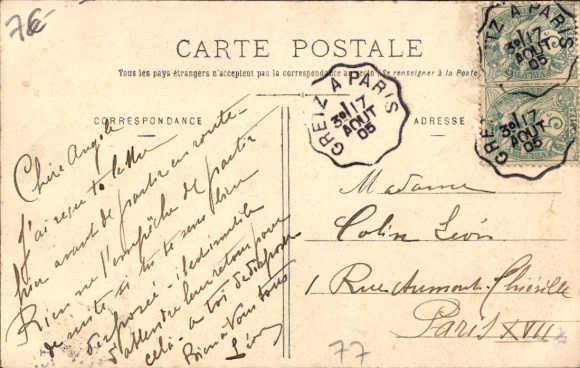 7€
CARTE POSTALE
Tous les pays étrangers n'acceptent pas la correspondance au recto (Se renseigner à la Poste)
CORRESPONDANCE
ADRESSE
GREIZ A PARIS
3º 17
AOUT
05
GREIZ A PARIS
3º 17
AOUT
05
GREIZ A PARIS
3º 17
AOUT
05
Chère Angèle
J'ai reçu ta lettre
hier avant de partir en route
Rien ne t'empêche de partir
de suite si tu te sens bien
disposée - il est inutile
d'attendre leur retour pour
cela - à toi de disposer
Bien à Vous tous
Léon
Madame
Colin Léon
1 Rue Aumont-Thiéville
Paris XVII
77